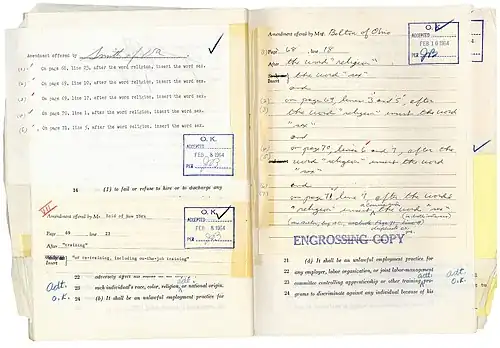 Amendment offered by Smith of Va
(1) On page 68, line 23, after the word religion, insert the word sex.
(2) On page 69, line 10, after the word religion, insert the word sex.
(3) On page 69, line 17, after the word religion, insert the word sex.
(4) On page 70, line 1, after the word religion, insert the word sex.
(5) On page 71, line 5, after the word religion, insert the word sex.
O. K.
ACCEPTED
FEB 8 1964
PER
16 (1) to fail or refuse to hire or to discharge any
Amendment offered by Mr. Reid of New York
Page 49 Line 23
After "training"
Insert "or re-training, including on-the-job training"
O. K.
ACCEPTED
FEB 8 1964
PER
22 adversely
23 such individual's race, color, religion, or national origin.
24 (b) It shall be an unlawful employment practice for
adt.
O.K.
adt.
Amendment offered by Mr. Bolton of Ohio
(1) Page 68, line 18
After the word "religion"
Insert the word "sex"
and
(2) on page 69, lines 3 and 5 after
(3) the words "religion" insert the word
"sex"
and
(4) on page 70, lines 6 and 7, after the
(5) word "religion" insert the word
"sex"
(6) and
on page 71, line 9, after the words
"religion" insert the word "sex"
O. K.
ACCEPTED
FEB 10 1964
PER
ENGROSSING COPY
21 (d) It shall be an unlawful employment practice for
22 any employer, labor organization, or joint labor-management
23 committee controlling apprenticeship or other training pro-
24 grams to discriminate against any individual because of his
adt.
O.K.
adt.